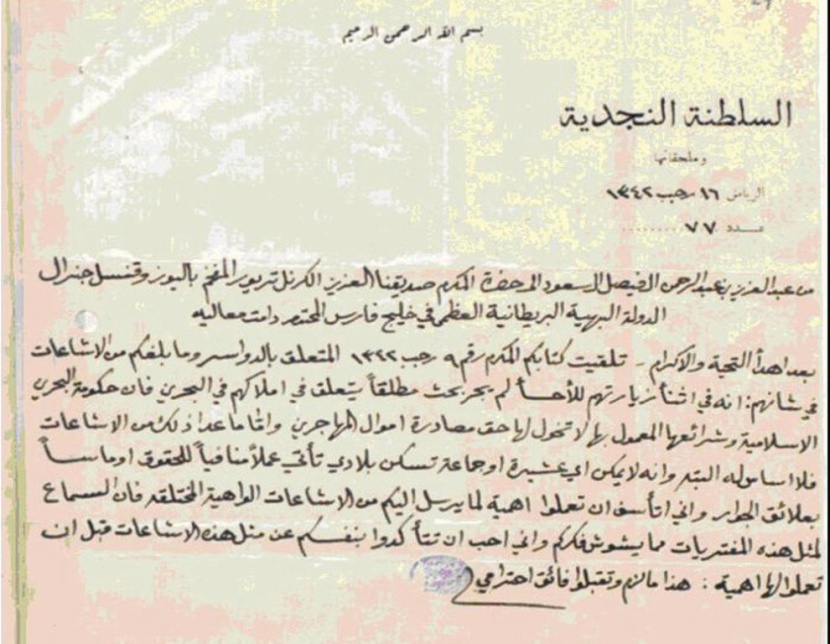 بسم الله الرحمن الرحيم
السلطنة النجدية
وملحقاتها
الرياض ١٦ رجب ١٣٤٢
عدد ٧٧
من عبدالعزيز بن عبدالرحمن الفيصل السعود الى حضرة المكرم صديقنا العزيز الكرنل تريور المفخم باليوز وقنسل جنرال
الدولة البهية البريطانية العظمى في خليج فارس المحترم دامت معاليه
بعد اهدأ التحية والاكرام - تلقيت كتابكم المكرم رقم ٩ رجب ١٣٤٢ المتعلق بالدواسر وما بلغكم من الاشاعات
في شانهم: انه في اثنأ زيارتهم للأحسأ لم يجر بحث مطلقاً يتعلق في املاكهم في البحرين فان حكومة البحرين
الاسلامية وشرائعها المعمول بها لا تخول لها حق مصادرة اموال المهاجرين واما ما عدا ذلك من الاشاعات
فلا اساس له البته وانه لا يمكن اي عشيرة او جماعة تسكن بلادي تأتي عملاً منافياً للحقوق او ماساً
بعلائق الجوار واني اتأسف ان تعطوا اهمية لما يرسل اليكم من الاشاعات الواهية المختلقه فان السماع
لمثل هذه المفتريات مما يشوش فكركم واني احب ان تتأكدوا بنفسكم عن مثل هذه الاشاعات قبل ان
تعطوا لها اهمية : هذا ما لزم وتقبلوا فائق احترامي